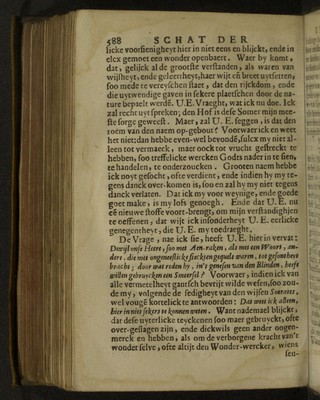 588 SCHAT DER
licke voorsienigheyt hier in niet eens en blijckt, ende in
elcx gemoet een wonder openbaert. Waer by komt,
dat, gelijck al de grootste verstanden, als waren van
wijsheyt, ende geleertheyt, haer wijt eñ breet uytsetten,
soo mede te vereyschen staet, dat den rijckdom, ende
die uytwendige gaven in sekere plaetschen door de na-
ture bepaelt werdē. U.E. Vraeght, wat ick nu doe. Ick
zal recht uyt spreken; den Hof is dese Somer mijn mee-
ste sorge geweest. Maer, zal U.E. seggen, is dat den
roem van den naem op-gebout? Voorwaer ick en weet
het niet: dan hebbe even-wel bevondē, sulcx my niet al-
leen tot vermaeck, maer oock tot vrucht gestreckt te
hebben, soo treffelicke wercken Godes nader in te sien,
te handelen, te onderzoecken. Grooten naem hebbe
ick noyt gesocht, ofte verdient, ende indien hy my te-
gens danck over-komen is, sou en zal hy my niet tegens
danck verlaten. Dat ick my voor weynige, ende goede
goet make, is my lofs genoegh. Ende dat U.E. nu
eē nieuwe stoffe voort-brengt, om mijn verstandighjen
te oeffenen, dat wijt ick insonderheyt U.E. eerlicke
genegentheyt, die U.E. my toedraeght.
De Vrage, nae ick sie, heeft U.E. hier in vervat:
Dewijl onse Heere, soo met Aen-raken, als met een Woort, an-
dere, die met ongeneeslicke sieckten gequelt waren, tot gesontheyt
bracht; door wat reden hy, in 't genesen van den Blinden, heeft
willen gebruycken een Smeersel? Voorwaer, indien ick van
alle vermetelheyt gantsch bevrijt wilde wesen, soo zou-
de my, volgende de sedigheyt van den wijsen Socrates,
wel vougē kortelickt te antwoorden: Dat weet ick alleen,
hier in niet sekers te konnen weten. Want nademael blijckt,
dat dese uyterlicke teyckenen soo maer gebruyckt, ofte
over-geslagen zijn, ende dickwils geen ander oogen-
merck en hebben, als om de verborgene kracht van't
wonder selve, ofte altijt den Wonder-wercker, wiens
seu-